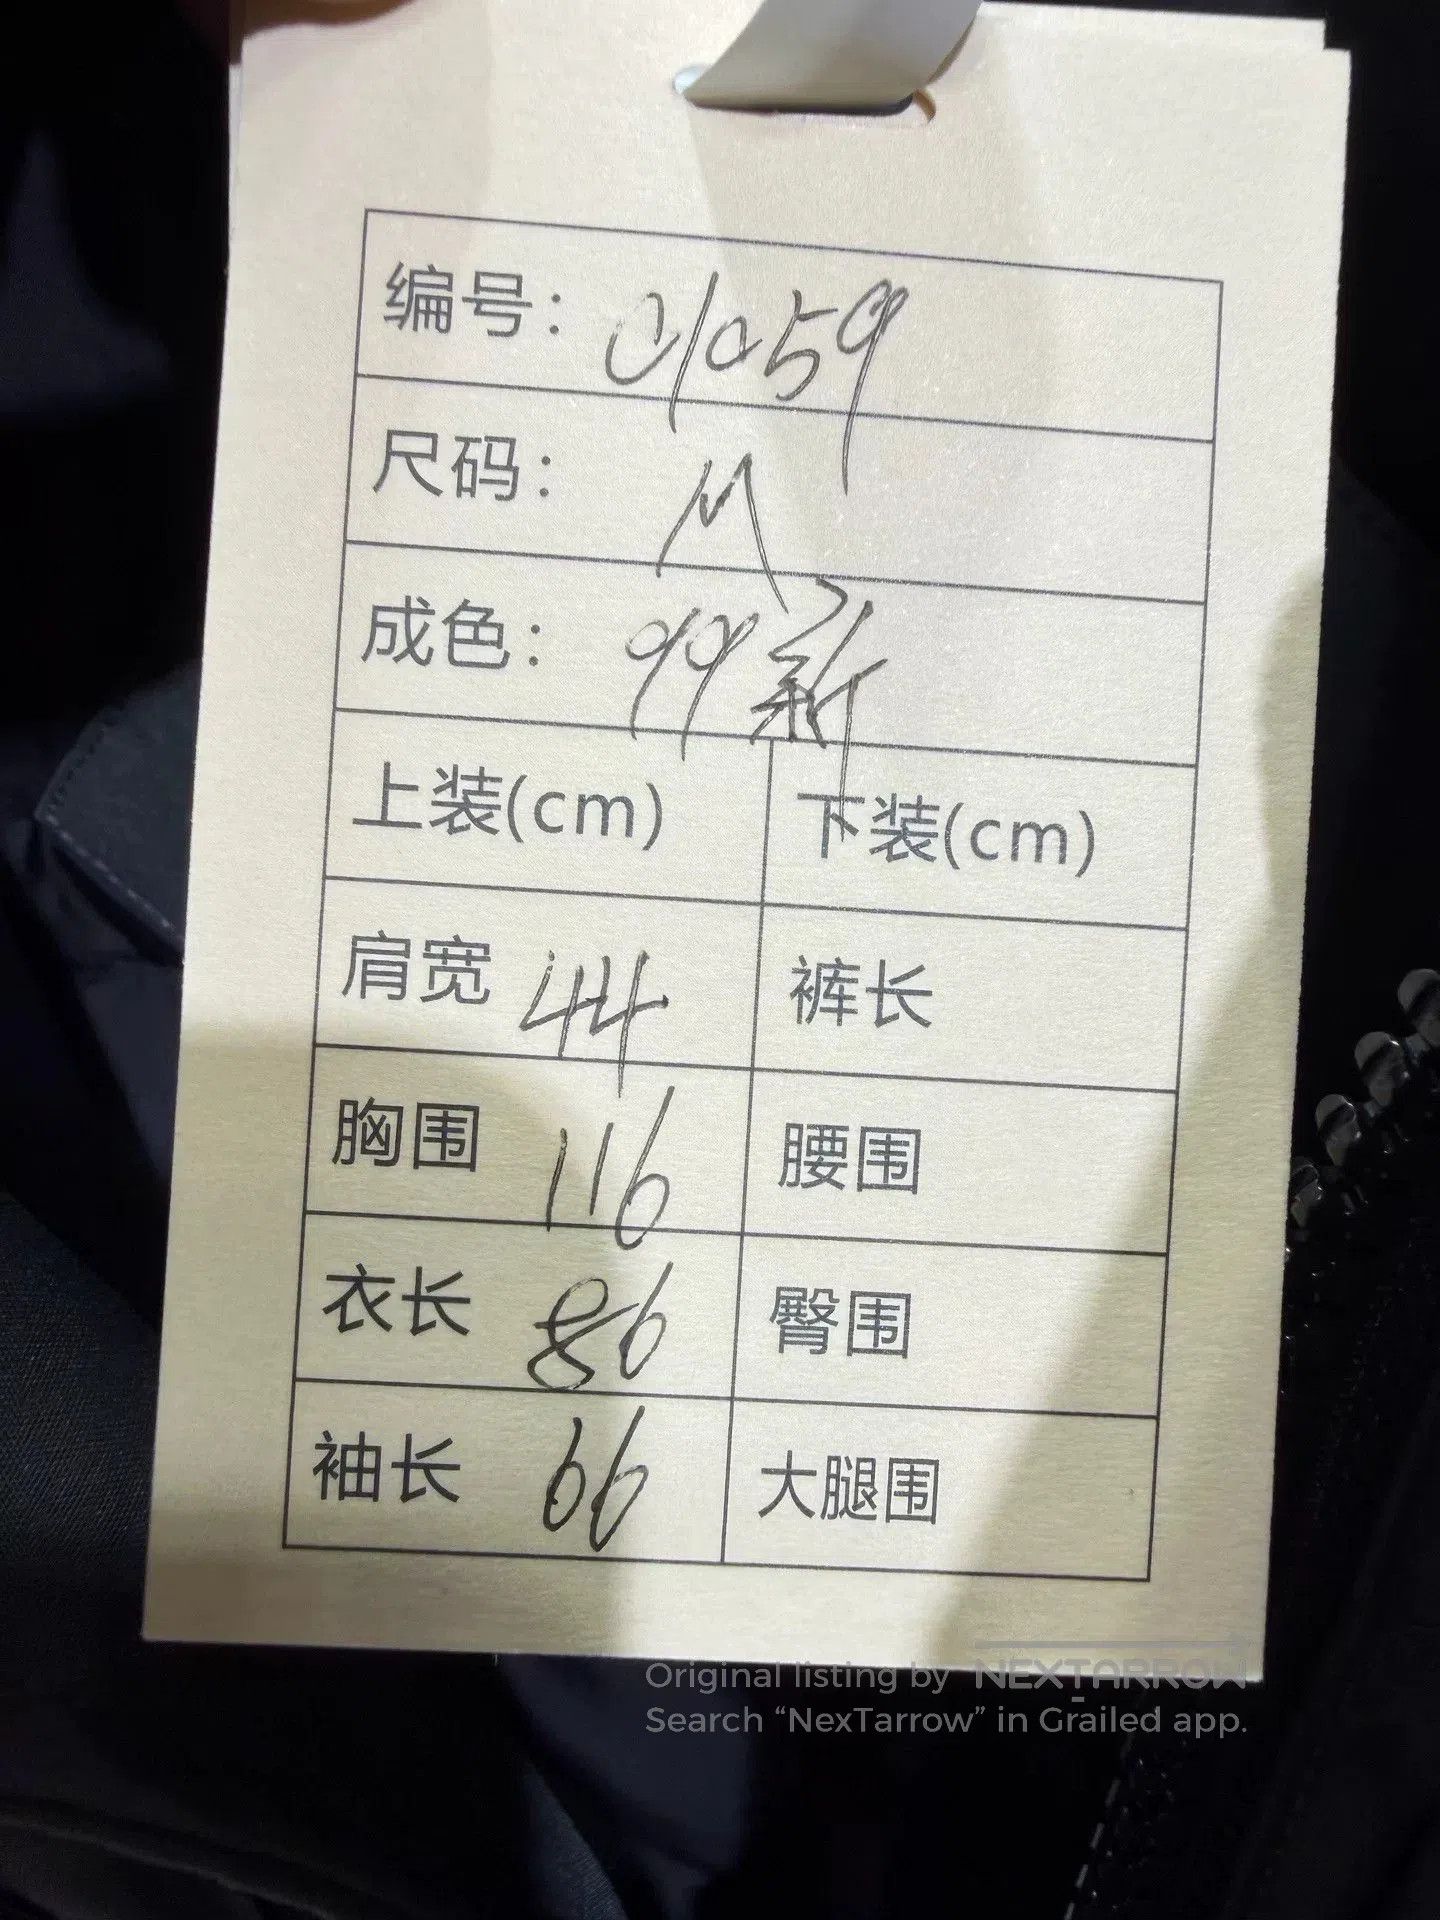 编号：01059
尺码：M
成色：99新
上装(cm) 下装(cm)
肩宽 44 裤长
胸围 116 腰围
衣长 86 臀围
袖长 66 大腿围
Original listing by NEXTARROW
Search “NexTarrow” in Grailed app.